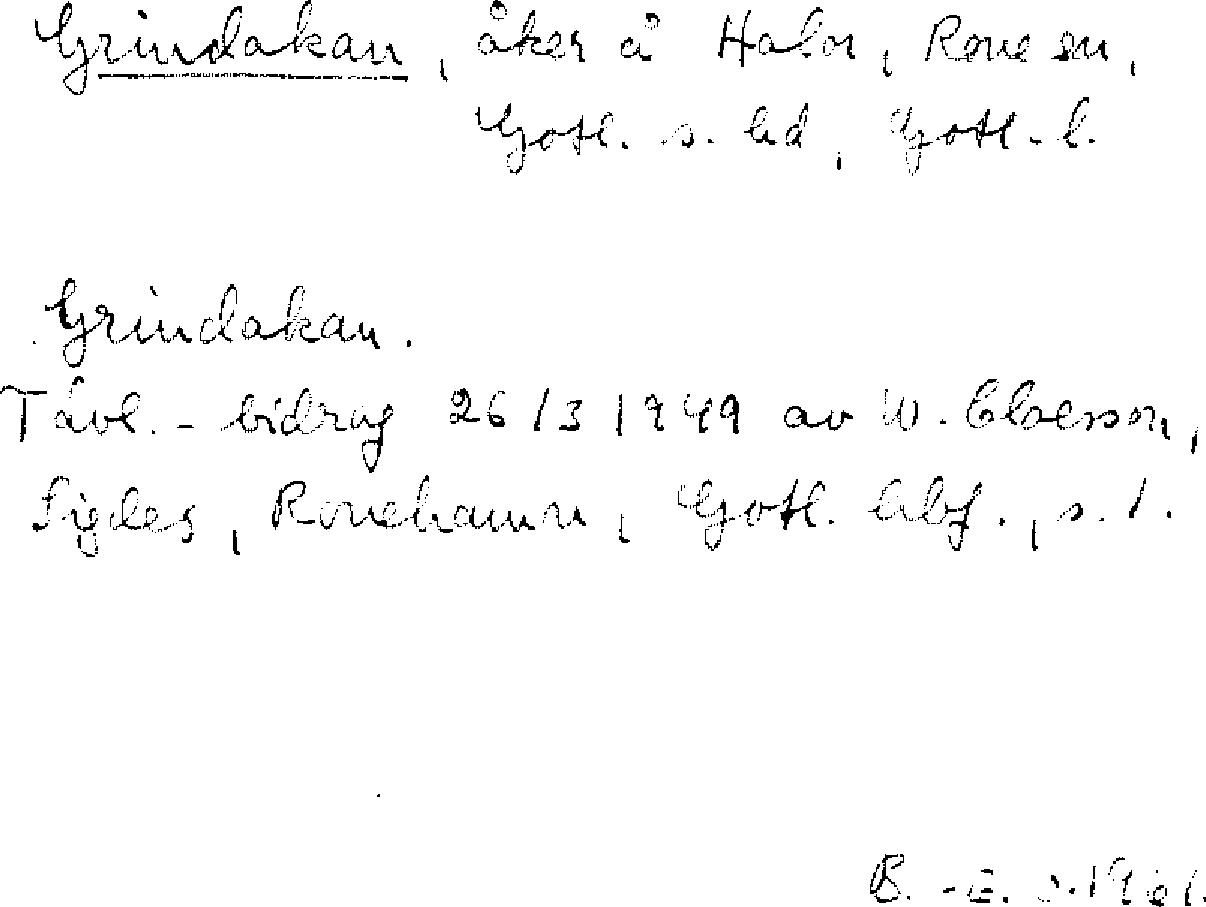 Grindakan, åker å Halor, Rone sn,
Gotl. s. hd, Gotl. l.
Grindakan.
Tävl.-bidrag 26/3 1949 av W. Claesson,
Sigdes, Ronehamn, Gotl. Alleh., s. 1.
B.-E. 1961.